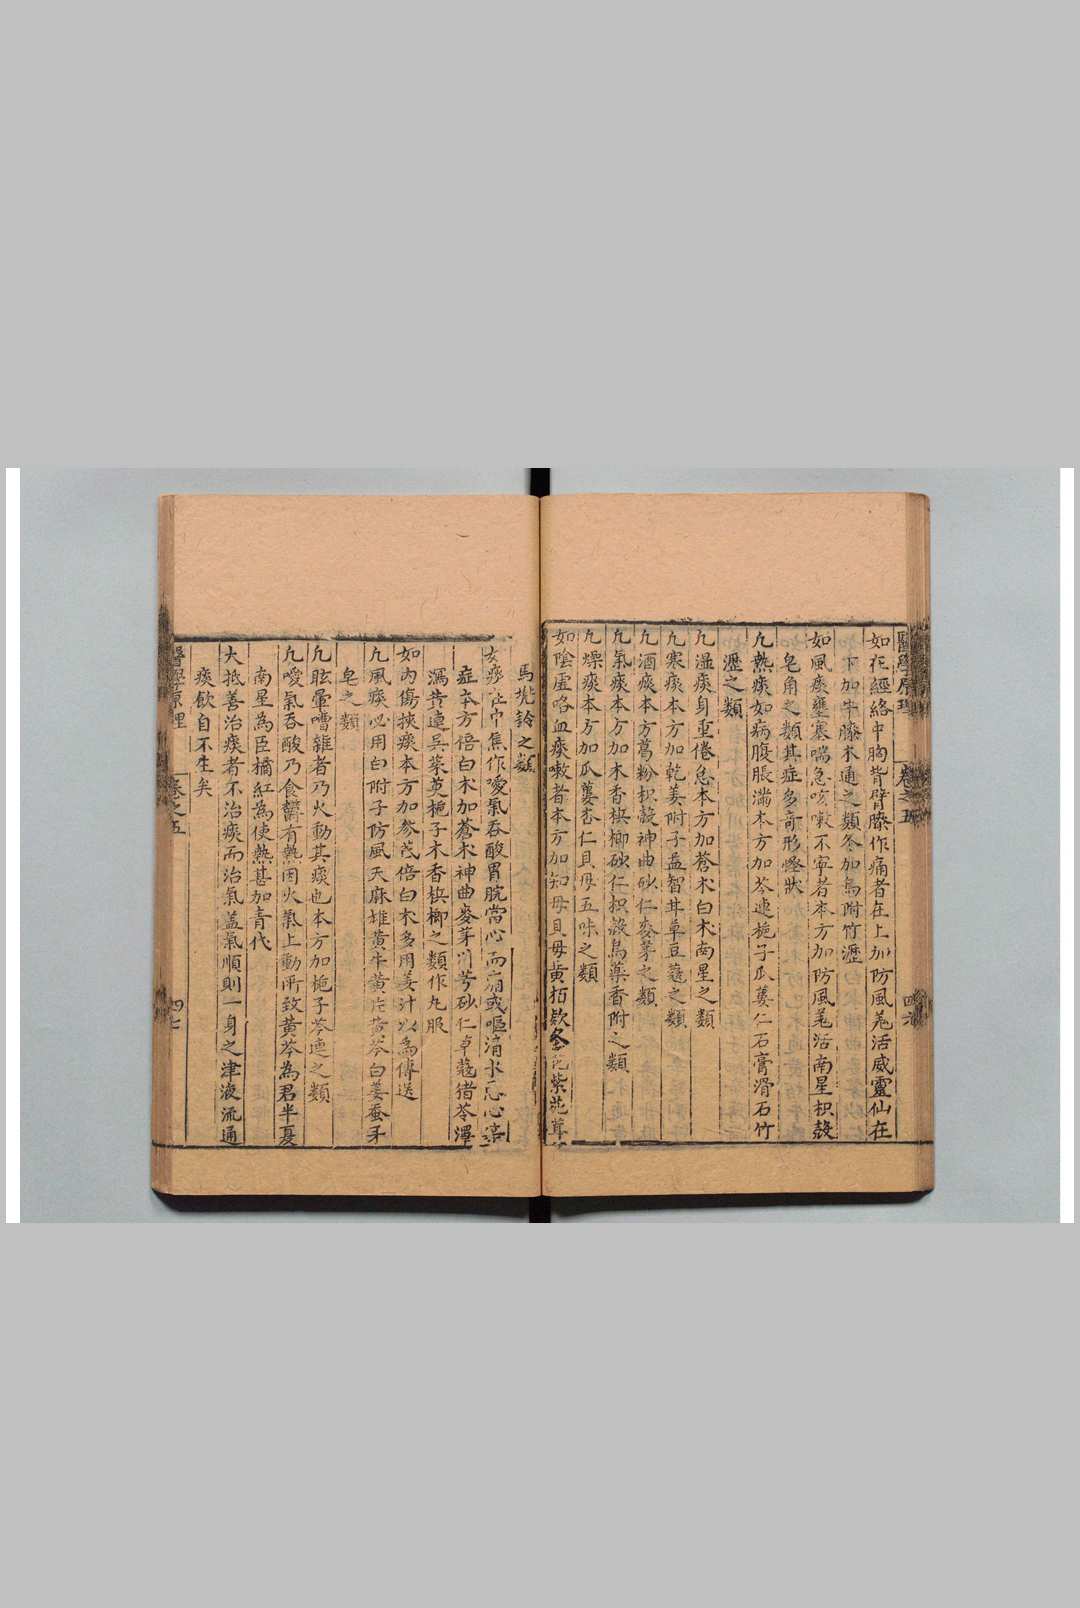 醫學原理 卷之五
如在經絡中胸背臂膝作痛者在上加防風羗活威靈仙在
下加牛膝木通之類冬加烏附竹瀝
如風痰壅塞喘急咳嗽不寧者本方加防風羗活南星枳殻
皂角之類其症多竒形怪狀
凢熱痰如病腹脹滿本方加芩連梔子瓜蔞仁石膏滑石竹
瀝之類
凢濕痰身重倦怠本方加蒼朮白朮南星之類
凢寒痰本方加乾姜附子益智艸草豆蔻之類
凢酒痰本方葛粉枳殻神曲砂仁麥芽之類
凢氣痰本方加木香梹榔砂仁枳殻烏藥香附之類
凢燥痰本方加瓜蔞杏仁貝母五味之類
如陰虛咯血痰嗽者本方加知母貝母黄栢欵冬花紫菀
馬兠鈴之類
痰在中焦作噯氣吞酸胃脘當心而痛或嘔清水忘心
症本方倍白朮加蒼朮神曲麥芽川芎砂仁草蔻猪苓澤
瀉黄連吳茱萸梔子木香梹榔之類作丸服
如内傷挾痰本方加參茂倍白朮多用姜汁以為傳送
凢風痰必用白附子防風天麻雄黄牛黄片芩白姜蚕牙
皂之類
凢眩暈嘈雜者乃火動其痰也本方加梔子芩連之類
凢噯氣吞酸乃食欝有熱因火氣上動所致黄芩為君半夏
南星為臣橘紅為使熱甚加青代
大抵善治痰者不治痰而治氣蓋氣順則一身之津液流通
痰飲自不生矣
醫學原理 卷之五 四七